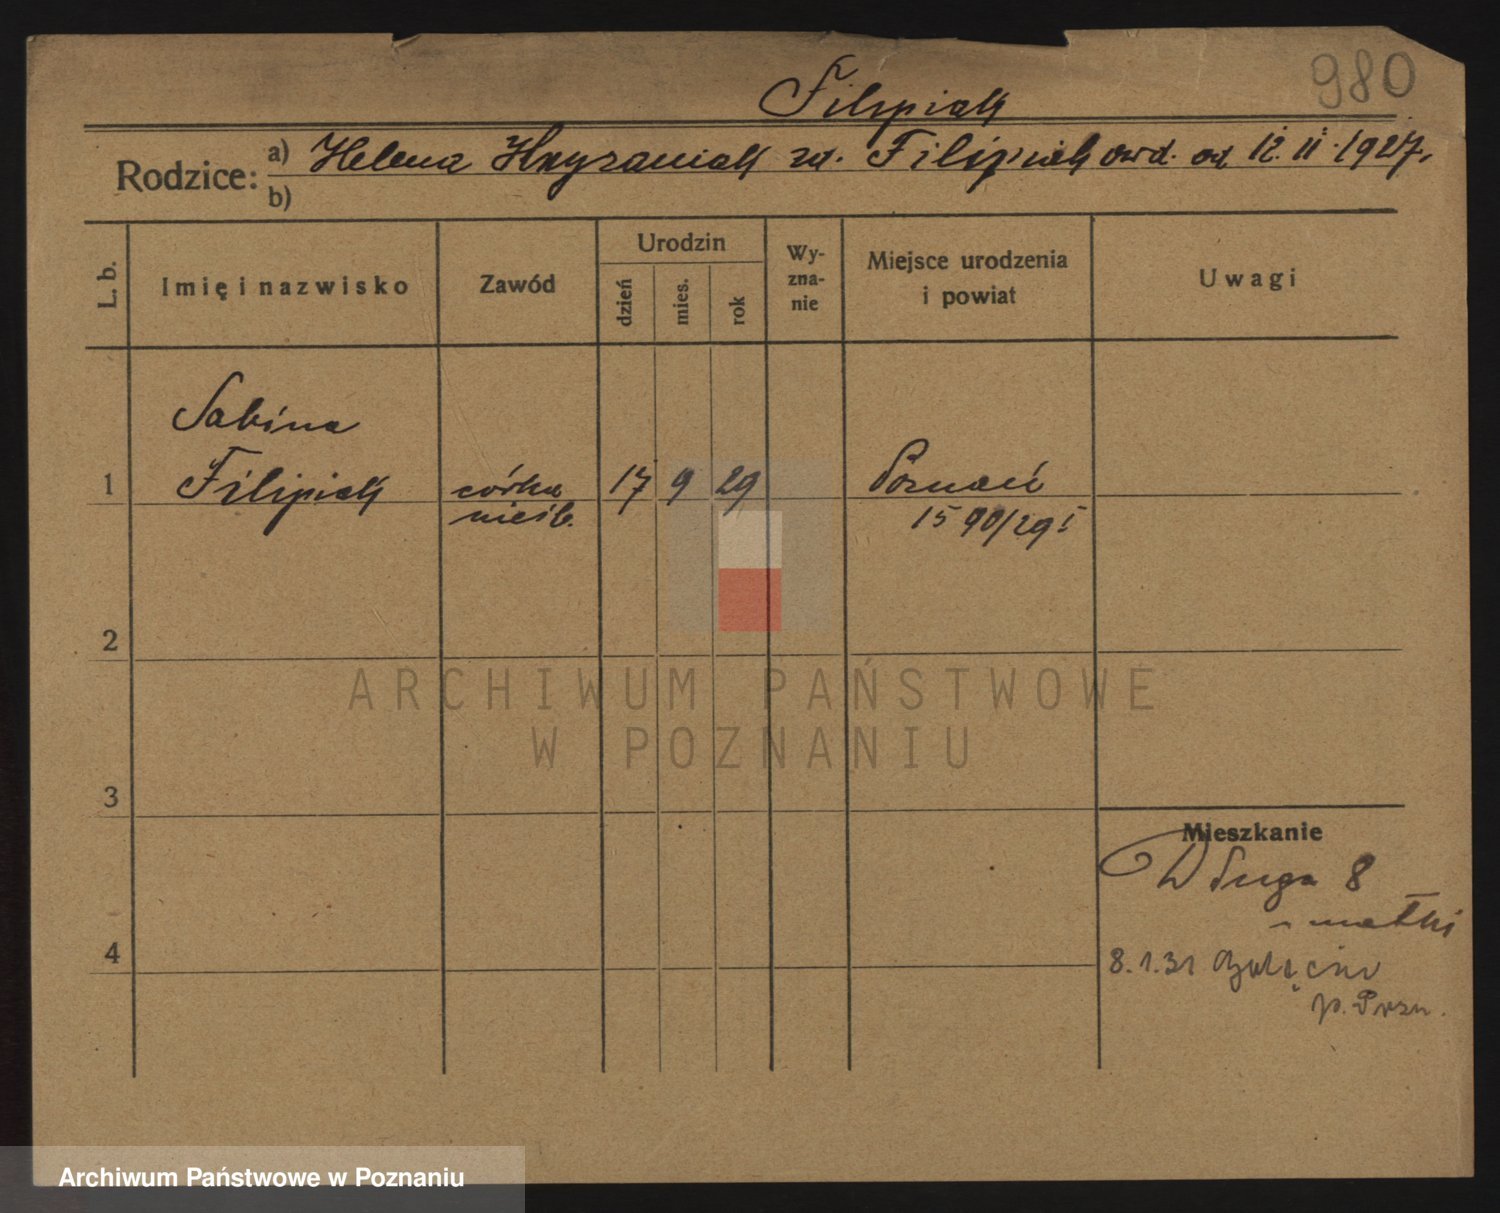 980
Filipiak
Rodzice: a) Helena Krysaniak zd. Filipiak owd. od 12. 11. 1927.
b)
L. b. Imię i nazwisko Zawód Urodzin dzień mies. rok Wy-zna-nie Miejsce urodzenia i powiat Uwagi
Sabina
1 Filipiak córka 17 9 29 Poznań
nieśl. 1590/29 I
2
ARCHIWUM PAŃSTWOWE
W POZNANIU
3
Mieszkanie
Długa 8
matki
4
8.1.31
p. Pozn.
Archiwum Państwowe w Poznaniu